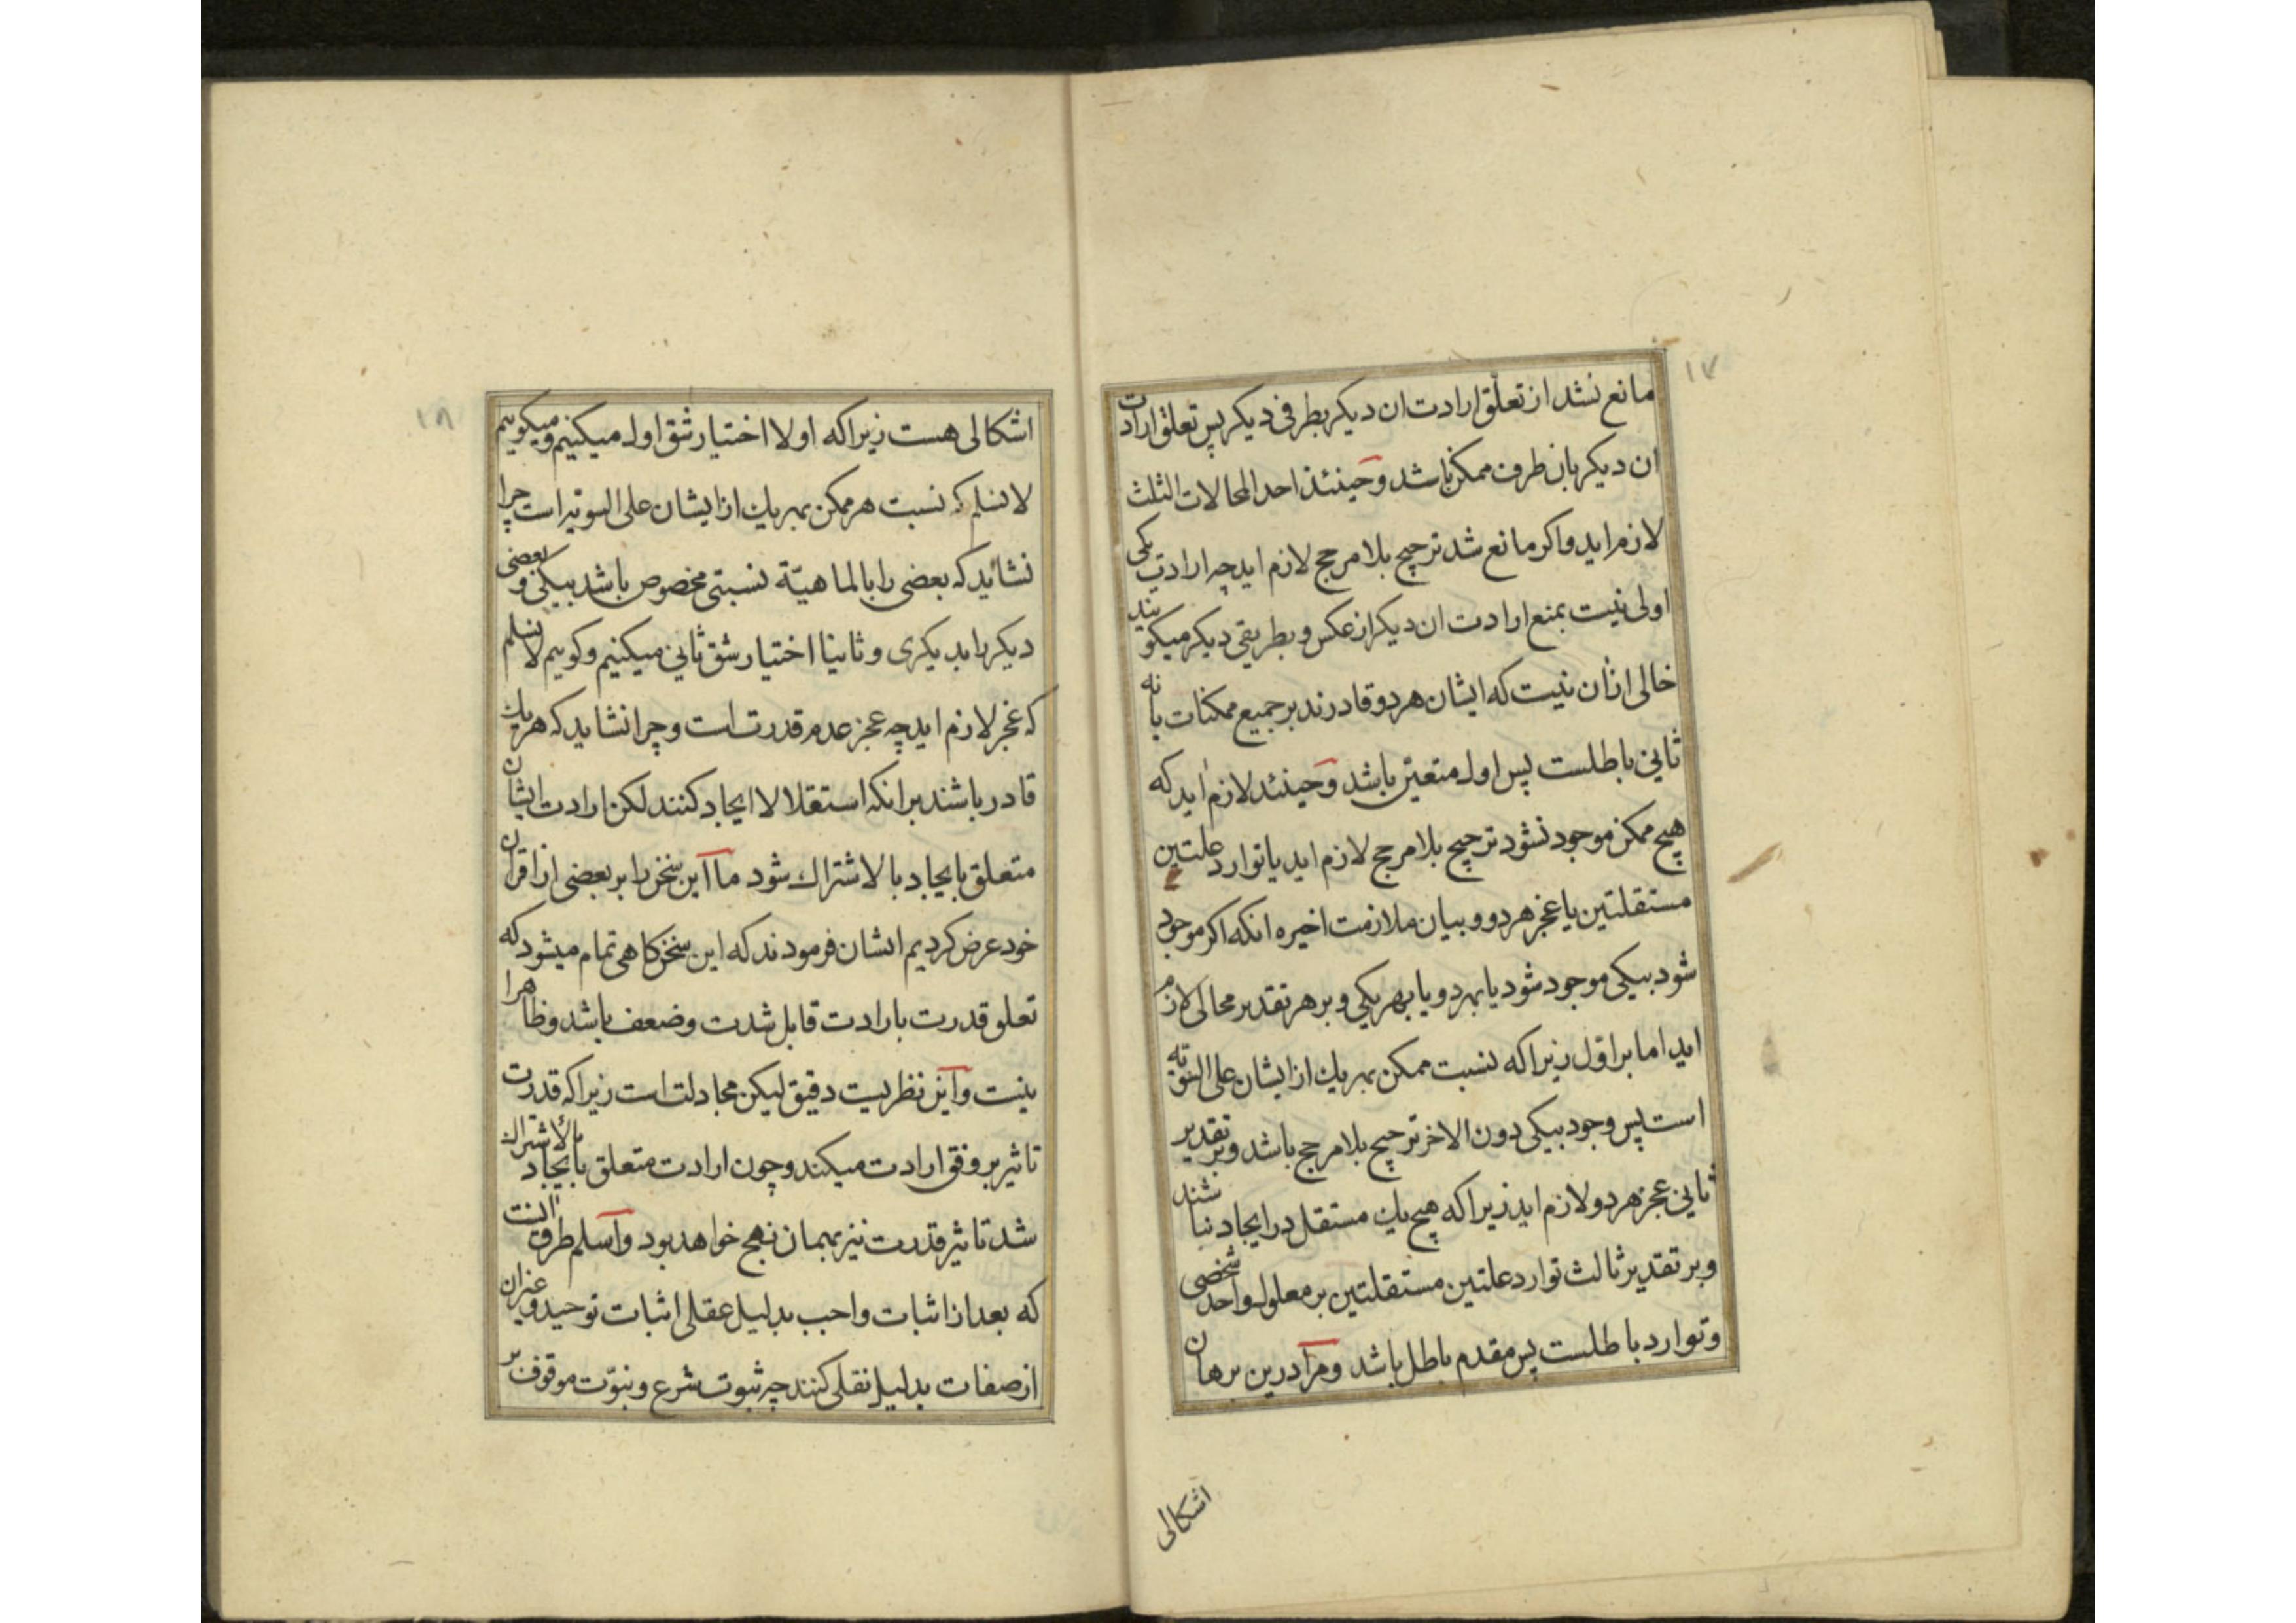 ۱۷
مانع نشد از تعلّق ارادت ان دیکر بطرفی دیکر پس تعلق ارادت
ان دیکر بان طرف ممکن باشد وحینئذ احد المحالات الثلث
لازم اید واکر مانع شد ترجیح بلا مرجح لازم اید چه ارادت یکی
اولی نیست بمنع ارادت ان دیکر از عکس و بطریقی دیکر میکویند
خالی ازان نیست که ایشان هردو قادرند بر جمیع ممکنات یا نه
ثانی باطلست پس اول متعیّن باشد وحینئذ لازم اید که
هیچ ممکن موجود نشود ترجیح بلا مرجح لازم اید یا توارد علتین
مستقلتین یا عجز هردو و بیان ملازمت اخیره انکه اکر موجود
شود بیکی موجود شود یا بهردو یا بهریکی وبرهر تقدیر محالی لازم
اید اما بر اوّل زیراکه نسبت ممکن بهریك از ایشان علی السّویّه
است پس وجود بیکی دون الاخر ترجیح بلا مرجح باشد وبر تقدیر
ثانی عجز هردو لازم اید زیراکه هیچ یك مستقل در ایجاد نباشند
وبر تقدیر ثالث توارد علتین مستقلتین بر معلول واحد شخصی
وتوارد باطلست پس مقدم باطل باشد ومرا درین برهان
اشکالی
۱۸
اشکالی هست زیراکه اولا اختیار شق اول میکنیم ومیکوییم
لانسلم که نسبت هر ممکن بهریك از ایشان علی السویه است چرا
نشاید که بعضی را بالماهیّة نسبتی مخصوص باشد بیکی و بعضی
دیکر را بدیکری وثانیا اختیار شق ثانی میکنیم وکوییم لانسلم
که عجز لازم اید چه عجز عدم قدرت است وچرا نشاید که هریك
قادر باشند برانکه استقلالا ایجاد کنند لکن ارادت ایشان
متعلق بایجاد بالاشتراك شود ما این سخن را بر بعضی از اقران
خود عرض کردیم ایشان فرمودند که این سخن کاهی تمام میشود که
تعلق قدرت بارادت قابل شدت وضعف باشد وظاهرا
نیست واین نظریست دقیق لیکن مجادلت است زیراکه قدرت
تاثیر بر وفق ارادت میکند وچون ارادت متعلق بایجاد بالاشتراك
شد تاثیر قدرت نیز بهمان نهج خواهد بود واسلم طرق انست
که بعد از اثبات واجب بدلیل عقلی اثبات توحید وغیران
از صفات بدلیل نقلی کنند چه ثبوت شرع ونبوّت موقوف بر